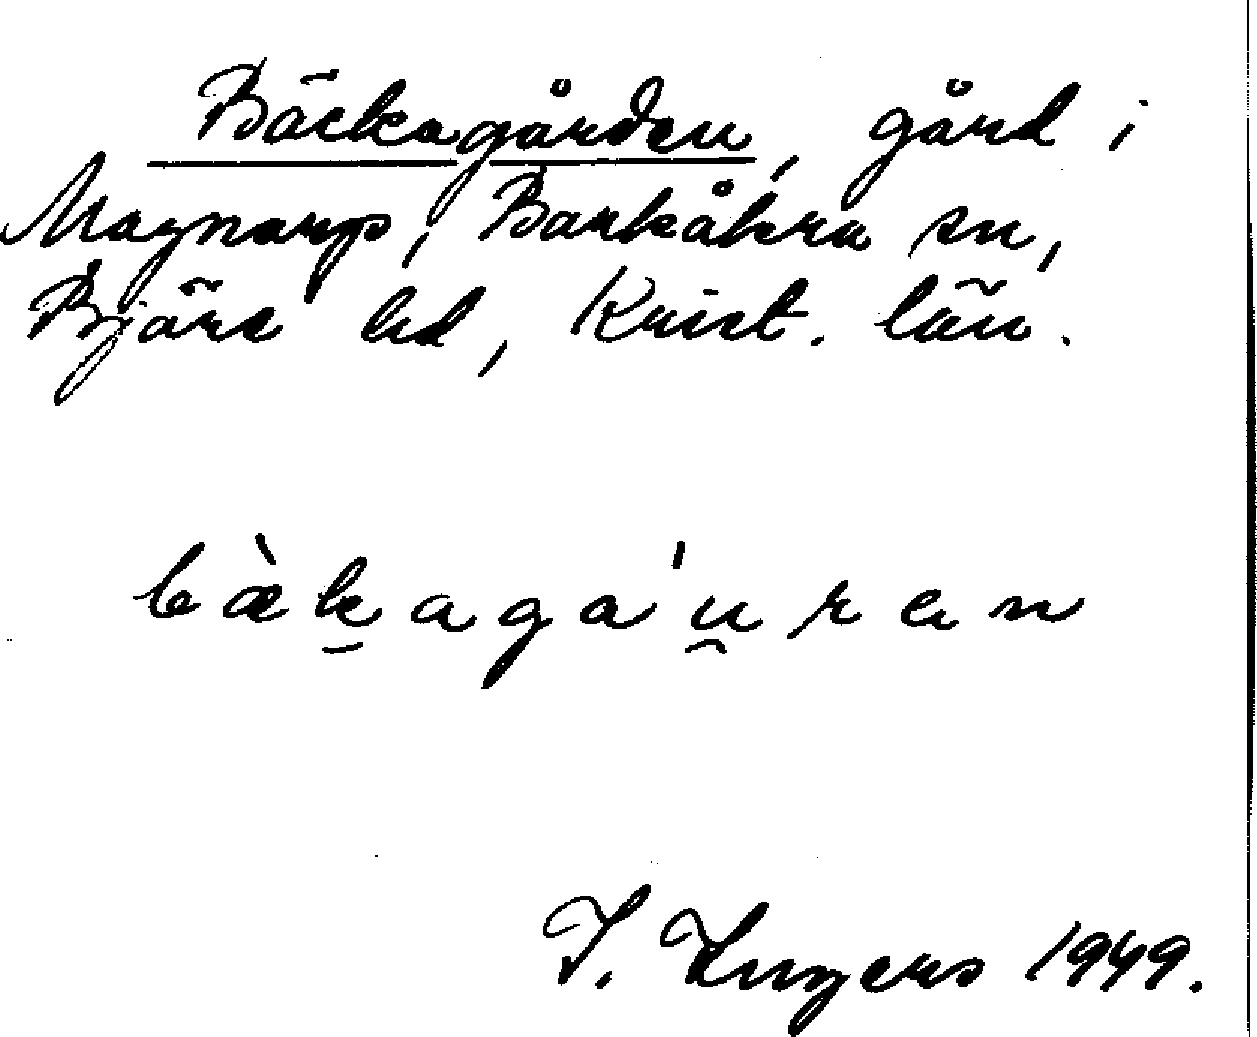 Bäckagården, gård i
Magnarp, Barkåkra sn,
Bjäre hd, Krist. län.
bæ̀ḵaga'u̯ren
I. Ingers 1949.